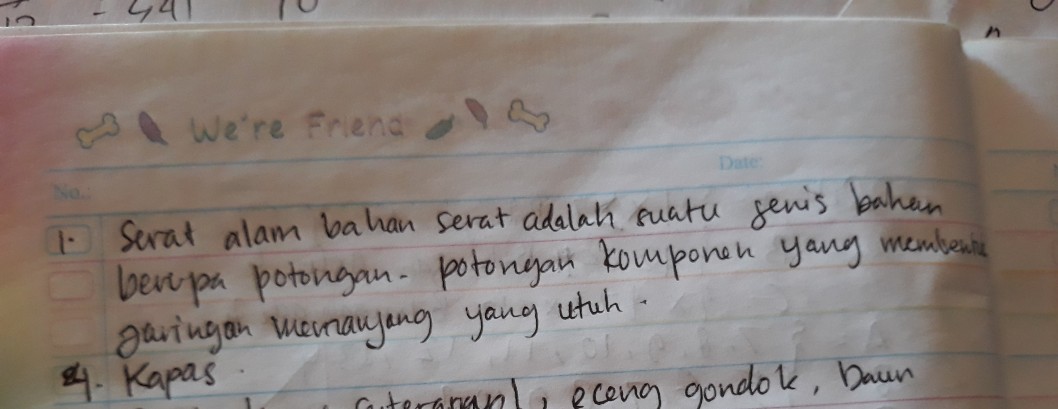 - 541 10
We're Friend
Date:
No.:
1. Serat alam bahan serat adalah suatu jenis bahan
berupa potongan-potongan komponen yang membentu
jaringan memanjang yang utuh.
4. Kapas
eceng gondok, Daun